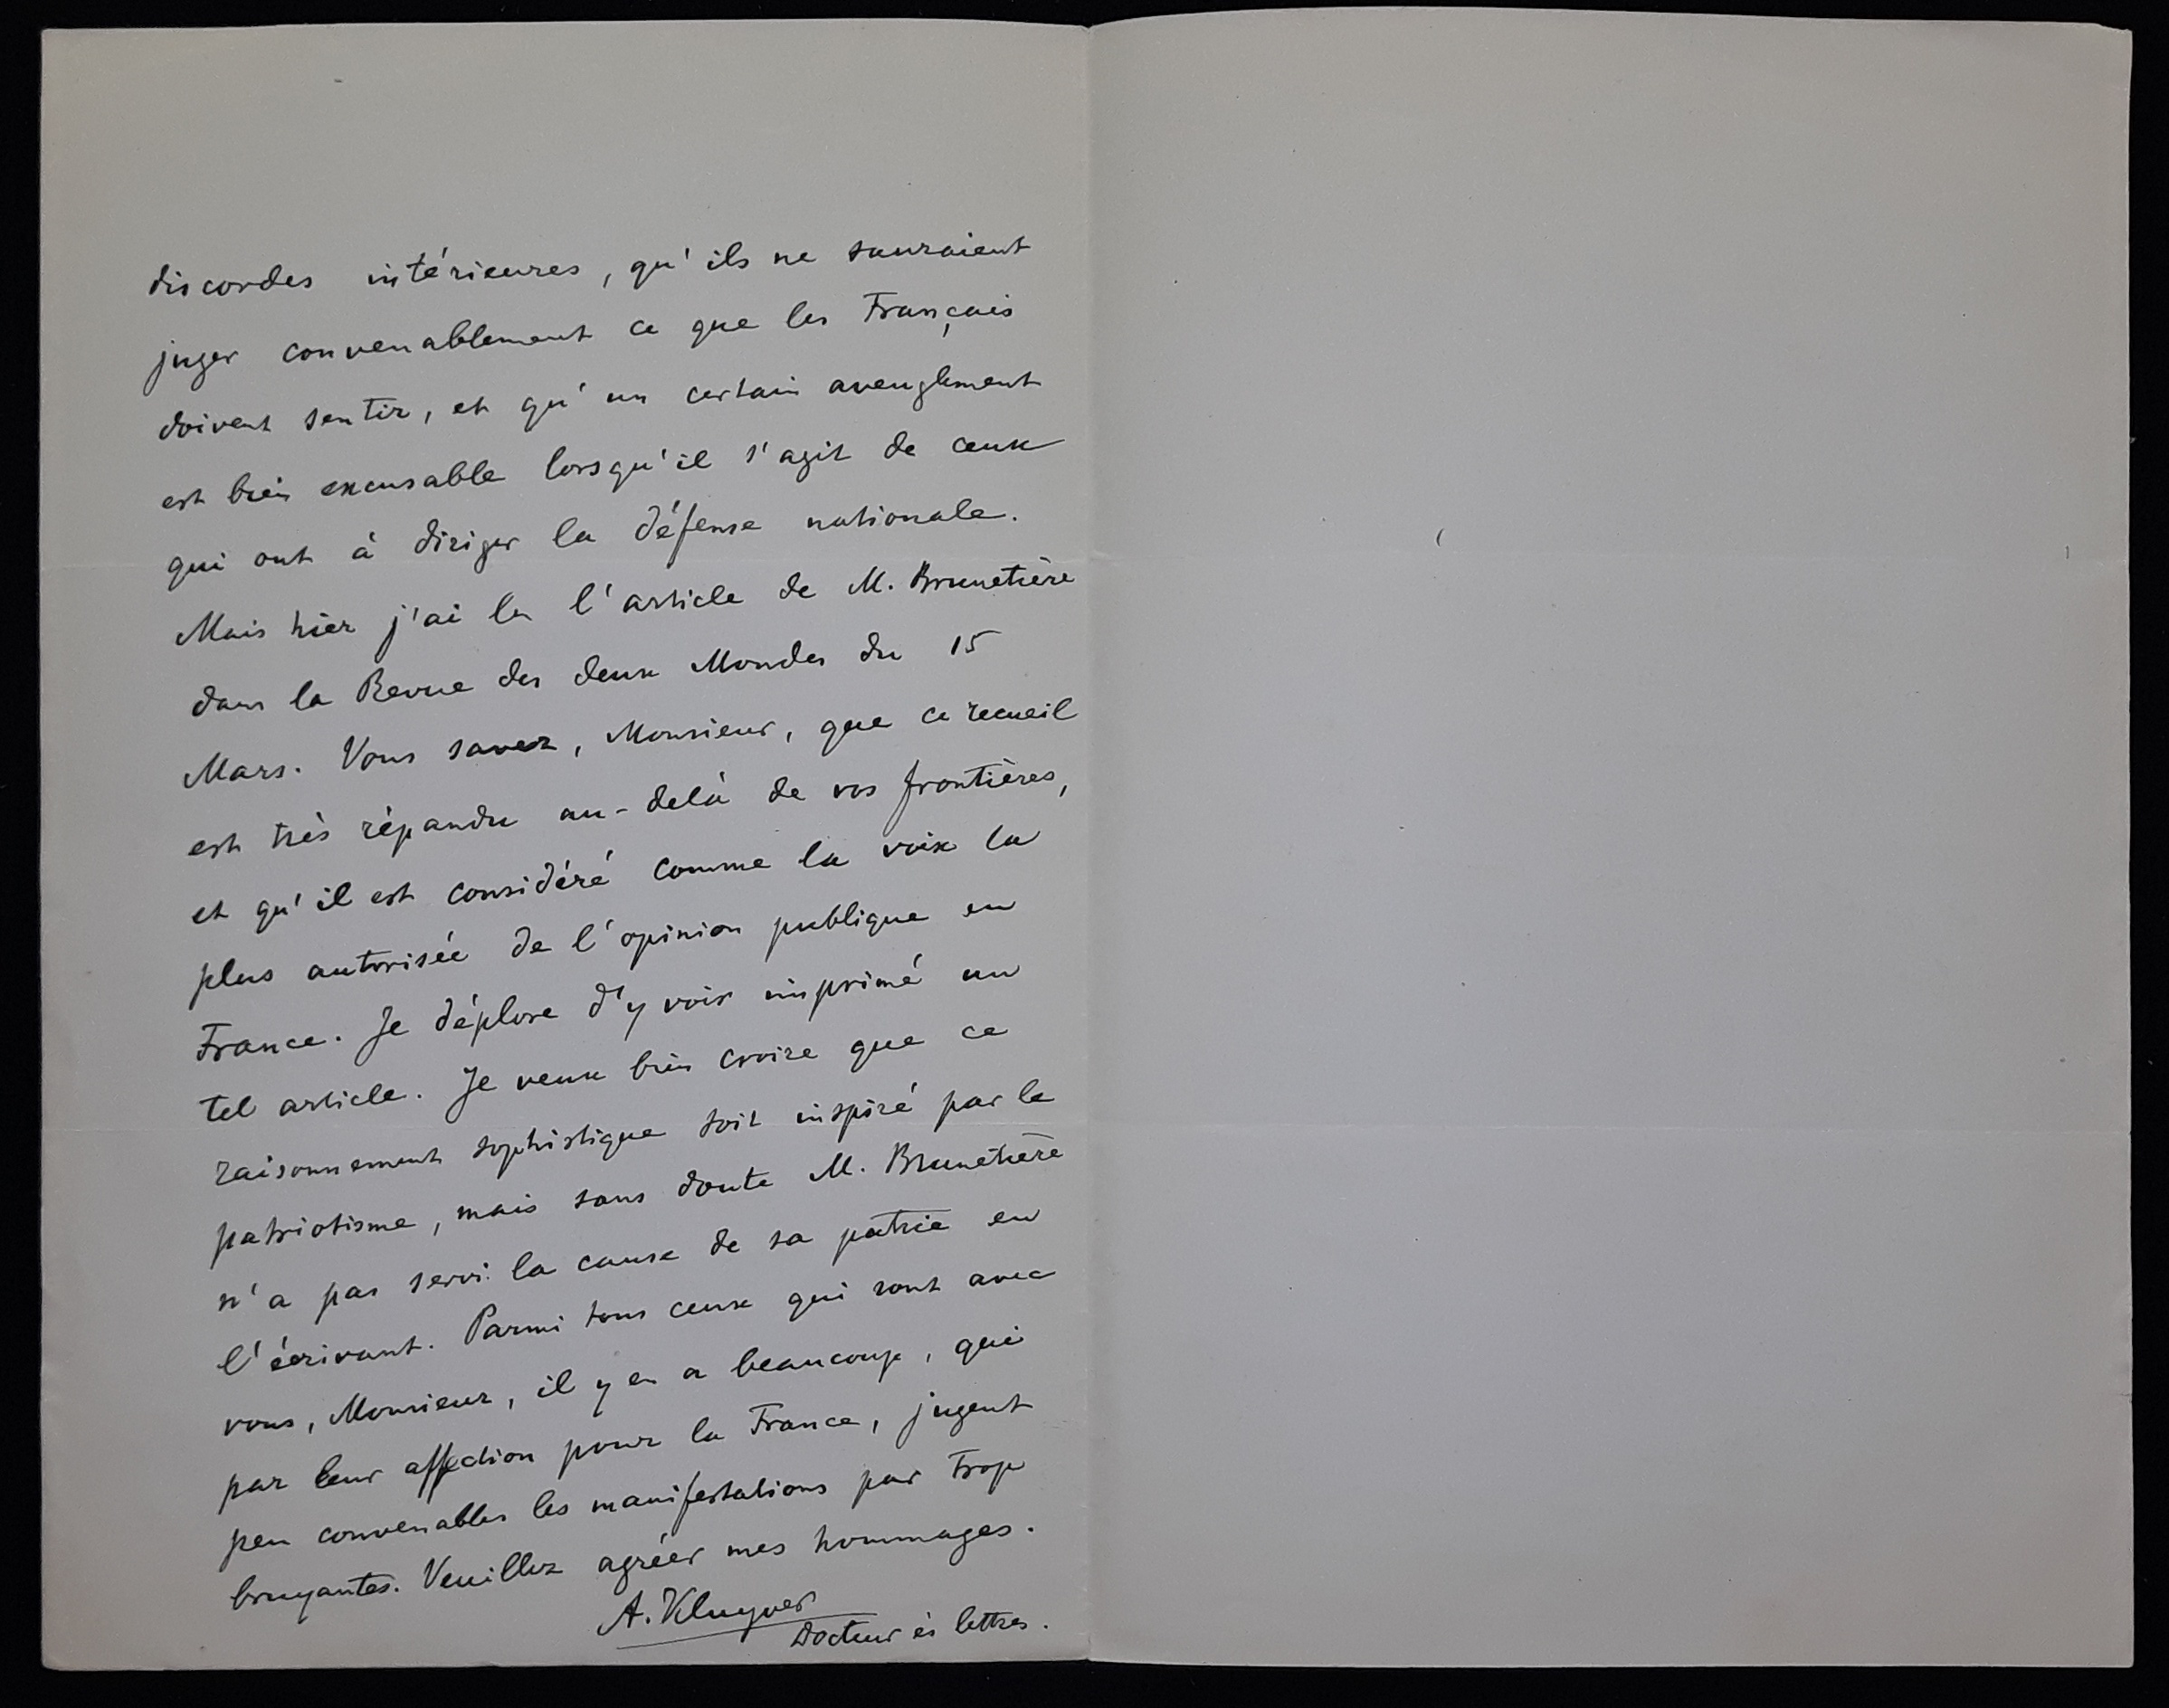 discordes intérieures, qu'ils ne sauraient
juger convenablement ce que les Français
doivent sentir, et qu'un certain aveuglement
est bien excusable lorsqu'il s'agit de ceux
qui ont à diriger la défense nationale.
Mais hier j'ai lu l'article de M. Brunetière
dans la Revue des deux Mondes du 15
Mars. Vous savez, Monsieur, que ce recueil
est très répandu au-delà de vos frontières,
et qu'il est considéré comme la voix la
plus autorisée de l'opinion publique en
France. Je déplore d'y voir imprimé un
tel article. Je veux bien croire que ce
raisonnement sophistique soit inspiré par le
patriotisme, mais sans doute M. Brunetière
n'a pas servi la cause de sa patrie en
l'écrivant. Parmi tous ceux qui sont avec
vous, Monsieur, il y en a beaucoup, qui
par leur affection pour la France, jugent
peu convenables les manifestations par trop
bruyantes. Veuillez agréer mes hommages.
A. Kluyver
Docteur ès lettres.